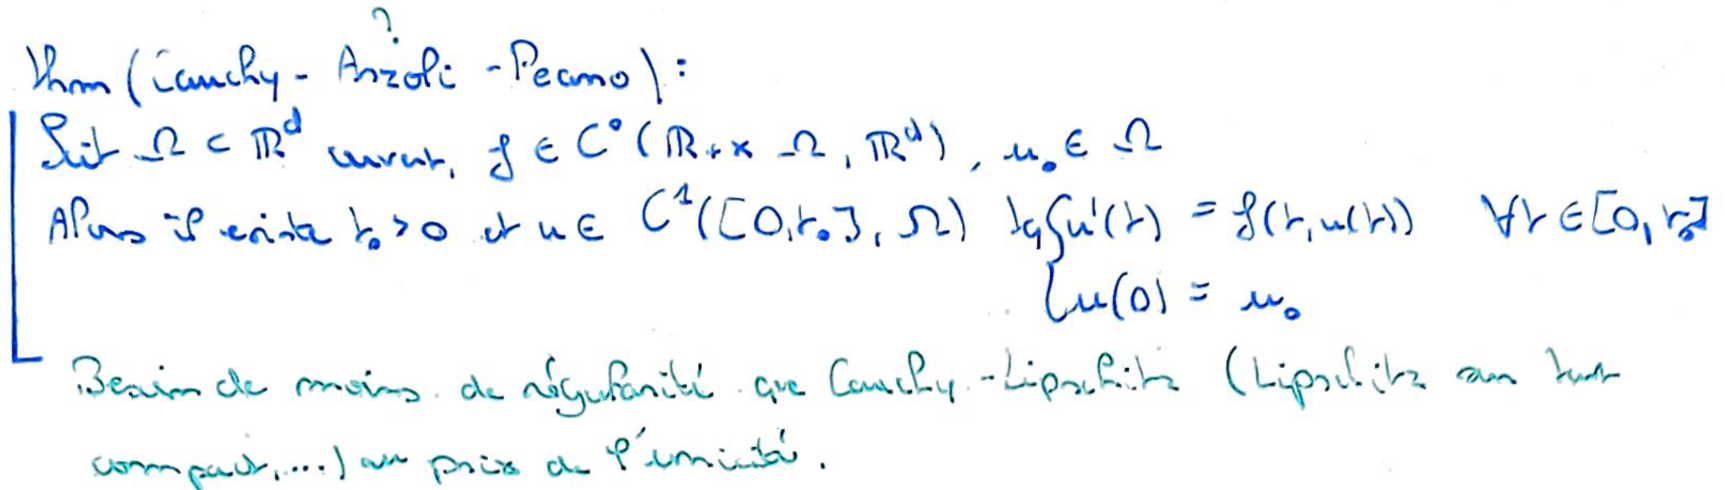 ?
Thm (Cauchy - Arzoli - Peano) :
Soit Ω ⊂ ℝ^d ouvert, f ∈ C^0(ℝ_+ × Ω, ℝ^d), u_0 ∈ Ω
Alors il existe t_0 > 0 et u ∈ C^1([0,t_0], Ω) tq { u'(t) = f(t,u(t)) ∀t ∈ [0,t_0]
u(0) = u_0
Besoin de moins de régularité que Cauchy-Lipschitz (Lipschitz sur tout
compact,...) au prix de l'unicité.